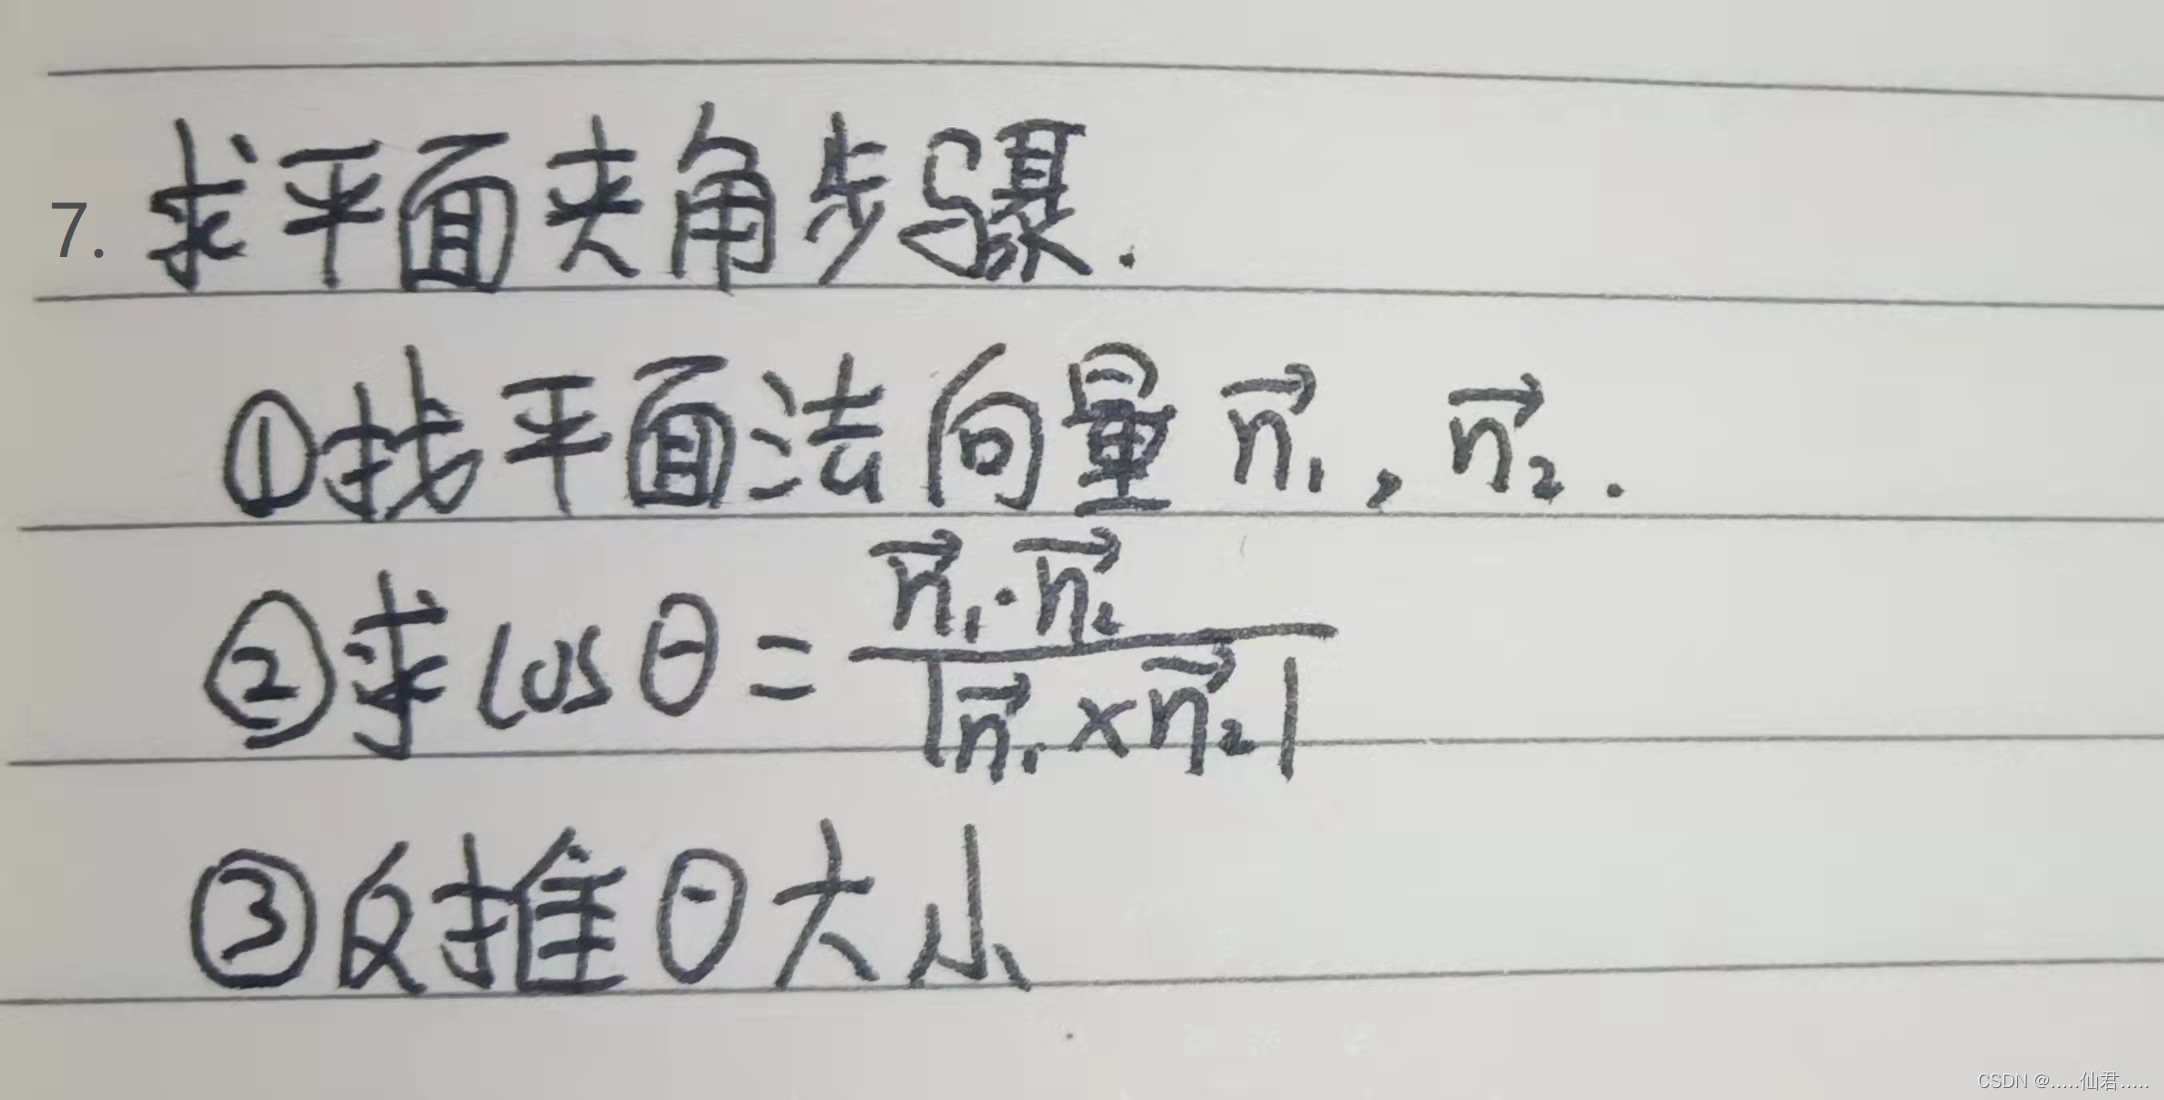 7. 求平面夹角步骤.
①找平面法向量 $\vec{n}_1, \vec{n}_2$.
②求 $\cos\theta = \frac{\vec{n}_1 \cdot \vec{n}_2}{|\vec{n}_1 \times \vec{n}_2|}$
③反推θ大小
CSDN @.....仙君.....